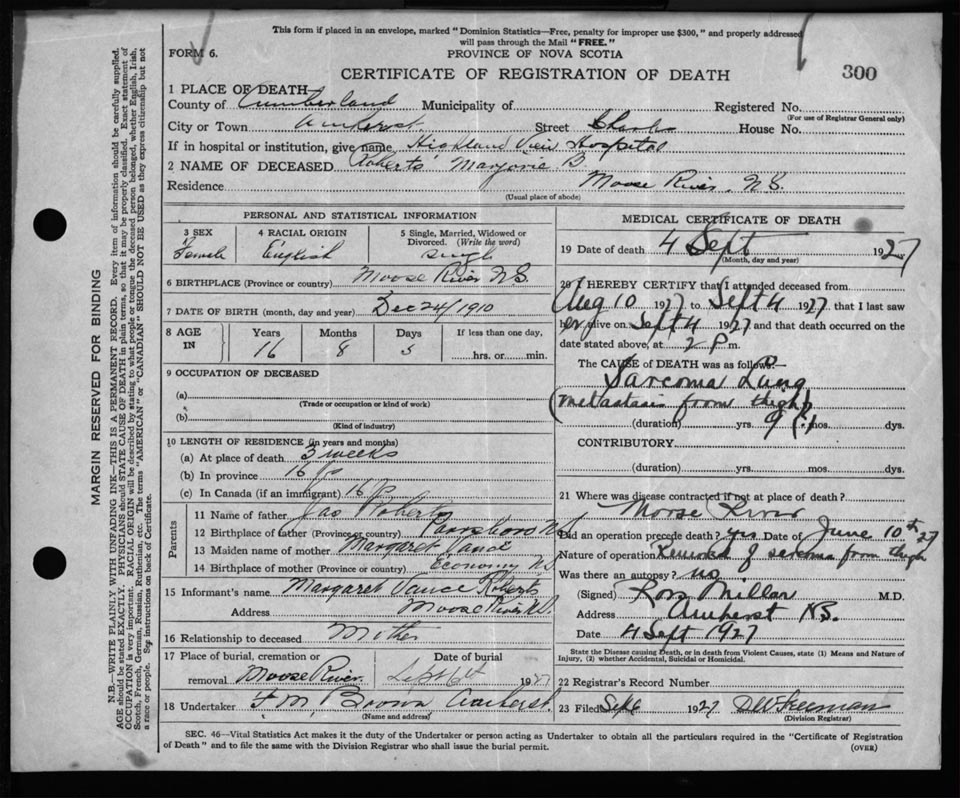 This form if placed in an envelope, marked "Dominion Statistics—Free, penalty for improper use $300," and properly addressed
will pass through the Mail "FREE."
FORM 6.
PROVINCE OF NOVA SCOTIA
CERTIFICATE OF REGISTRATION OF DEATH
300
1 PLACE OF DEATH
County of Cumberland Municipality of Registered No.
(For use of Registrar General only)
City or Town Amherst Street House No.
If in hospital or institution, give name Highland View Hospital
2 NAME OF DECEASED Roberts Marjorie B
Residence Moose River. N.S.
(Usual place of abode)
PERSONAL AND STATISTICAL INFORMATION
3 SEX 4 RACIAL ORIGIN 5 Single, Married, Widowed or Divorced. (Write the word)
Female English
6 BIRTHPLACE (Province or country) Moose River N.S.
7 DATE OF BIRTH (month, day and year) Dec 24/1910
8 AGE IN Years Months Days If less than one day,
16 8 hrs. or min.
9 OCCUPATION OF DECEASED
(a)
(Trade or occupation or kind of work)
(b)
(Kind of industry)
10 LENGTH OF RESIDENCE (in years and months)
(a) At place of death 3 weeks
(b) In province 16
(c) In Canada (if an immigrant) 16
Parents
11 Name of father Jas Roberts
12 Birthplace of father (Province or country) Parrsboro N.S.
13 Maiden name of mother Margaret Vance
14 Birthplace of mother (Province or country) Economy N.S.
15 Informant's name Margaret Vance Roberts
Address Moose River N.S.
16 Relationship to deceased Mother
17 Place of burial, cremation or removal Moose River. Date of burial Sept 6th 1927
18 Undertaker F M Brown Amherst
(Name and address)
MEDICAL CERTIFICATE OF DEATH
19 Date of death 4 Sept 1927
(Month, day and year)
20 I HEREBY CERTIFY that I attended deceased from
Aug 10 1927 to Sept 4 1927 that I last saw
her alive on Sept 4 1927 and that death occurred on the
date stated above, at 2 P m.
The CAUSE OF DEATH was as follows:—
Sarcoma Lung
(metastasis from thigh)
(duration) yrs. 9 (?) mos. dys.
CONTRIBUTORY
(duration) yrs. mos. dys.
21 Where was disease contracted if not at place of death?
Moose River
Did an operation precede death? yes Date of June 10th 27
Nature of operation Removal of sarcoma from thigh
Was there an autopsy? no
(Signed) Ross Millar M.D.
Address Amherst N.S.
Date 4 Sept 1927
State the Disease causing Death, or in death from Violent Causes, state (1) Means and Nature of
Injury, (2) whether Accidental, Suicidal or Homicidal.
22 Registrar's Record Number
23 Filed Sept 6 1927 D W Freeman
(Division Registrar)
SEC. 46—Vital Statistics Act makes it the duty of the Undertaker or person acting as Undertaker to obtain all the particulars required in the "Certificate of Registration
of Death" and to file the same with the Division Registrar who shall issue the burial permit.
(OVER)
MARGIN RESERVED FOR BINDING
N.B.—WRITE PLAINLY WITH UNFADING INK—THIS IS A PERMANENT RECORD. Every item of information should be carefully supplied.
AGE should be stated EXACTLY. PHYSICIANS should STATE CAUSE OF DEATH in plain terms, so that it may be properly classified. Exact statement of
OCCUPATION is very important. RACIAL ORIGIN will be described by stating to what people or tongue the deceased person belonged, whether English, Irish,
Scotch, French, German, Russian, Ruthenian, etc. The terms "AMERICAN" or "CANADIAN" SHOULD NOT BE USED as they express citizenship but not
a race or people. See instructions on back of Certificate.